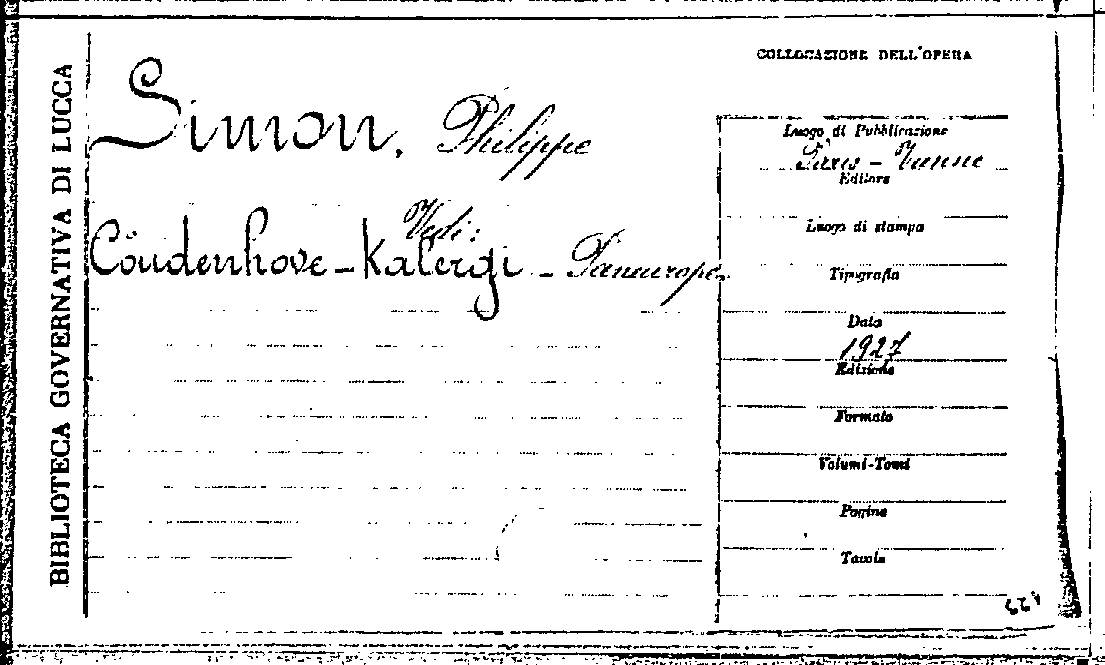 BIBLIOTECA GOVERNATIVA DI LUCCA
Simon, Philippe
Vedi:
Coudenhove-Kalergi - Paneurope
COLLOCAZIONE DELL'OPERA
Luogo di Pubblicazione
Paris - Vienne
Editore
Luogo di stampa
Tipografia
Data
1927
Edizione
Formato
Volumi-Tomi
Pagine
Tavole